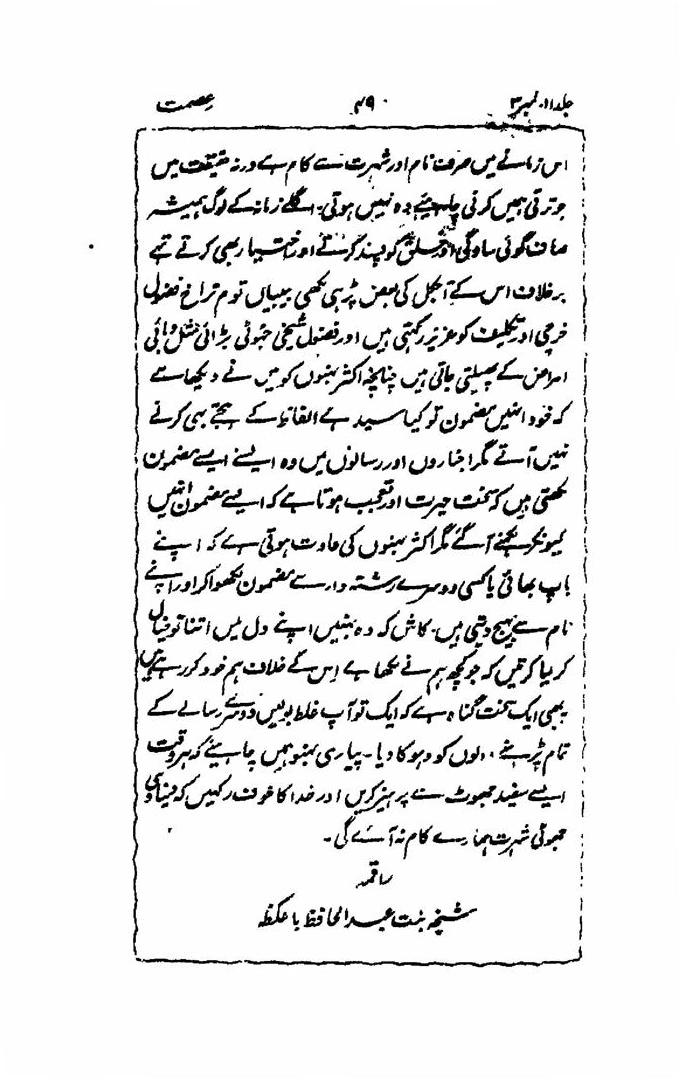 جلد ۱۱۔ نمبر ۳ ۴۹ عصمت
اس زمانے میں صرف نام اور شہرت سے کام ہے ورنہ حقیقت میں
جو ترقی ہمیں کرنی چاہیئے وہ نہیں ہوتی۔ اگلے زمانہ کے لوگ ہمیشہ
صاف گوئی سادگی اور کو پسند کرتے اور اختیار بھی کرتے تہے
برخلاف اس کے آجکل کی بعض پڑہی لکھی بیبیاں توم تراخ فضول
خرچی اور تکلیف کو عزیز رکہتی ہیں اور فضول شیخی جہوٹی بڑائی مثل وبائی
امراض کے پھیلتی جاتی ہیں چنانچہ اکثر بہنوں کو میں نے دیکھا ہے
کہ خود انہیں مضمون تو کیا سیدہے الفاظ کے ہجے بھی کرنے
نہیں آتے مگر اخباروں اور رسالوں میں وہ ایسے ایسے مضمون
لکھتی ہیں کہ سخت حیرت اور تعجب ہوتا ہے کہ ایسے مضمون انہیں
کیونکر لکہنے آ گئے مگر اکثر بہنوں کی عادت ہوتی ہے کہ اپنے
باپ بھائی یا کسی دوسرے رشتہ دار سے مضمون لکھوا کر اور اپنے
نام سے بہیج دیتی ہیں۔ کاش کہ وہ بہنیں اپنے دل میں اتنا تو خیال
کر لیا کرتیں کہ جو کچھ ہم نے لکھا ہے اس کے خلاف ہم خود کر رہے ہیں
یہی ایک سخت گناہ ہے کہ ایک تو آپ غلط بولیں دوسرے رسالے کے
تمام پڑہنے والوں کو دہوکا دیا۔ پیاری بہنو ہمیں چاہیئے کہ ہر وقت
ایسے سفید جھوٹ سے پرہیز کریں اور خدا کا خوف رکہیں کہ دنیاوی
جھوٹی شہرت ہمارے کام نہ آئے گی۔
راقمہ
بنت عبدالحافظ